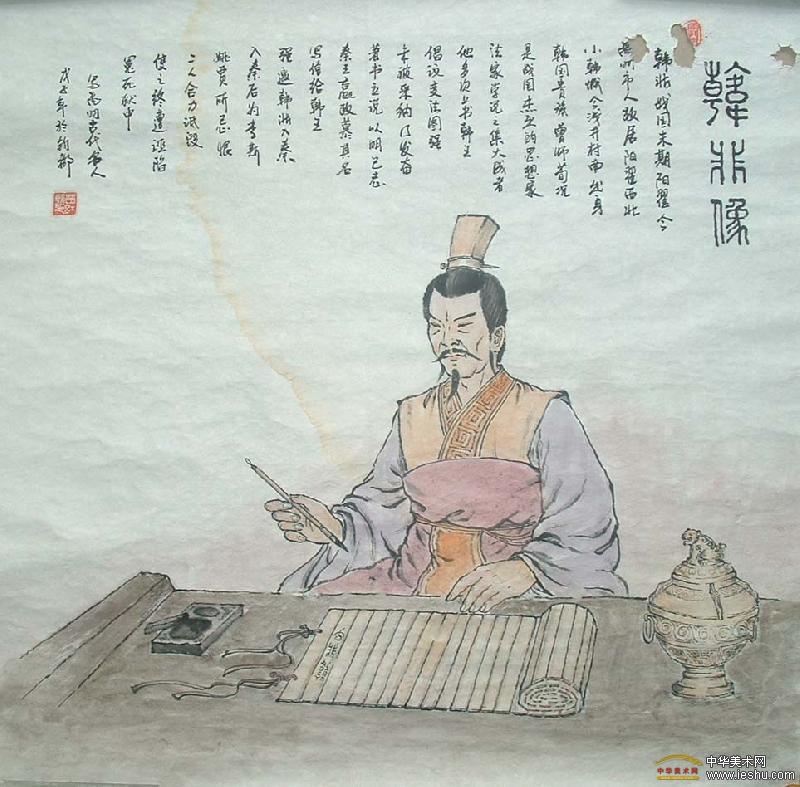 韓非像
韩非战国末期阳翟今
禹州市人故居阳翟西北
小韩城今浅井村南出身
韩国贵族曾师荀况
是战国杰出的思想家
法家学说之集大成者
他多次上书韩王
倡议变法图强
未被采纳后发奋
著书立说以明己志
秦王嬴政慕其名
写信给韩王
强邀韩非入秦
入秦后为李斯
姚贾所忌恨
二人合力
使之终遭诬陷
冤死狱中
写禹州古代名人
戊子年於钧都
中华美术网
中华美术网
www.ieshu.com